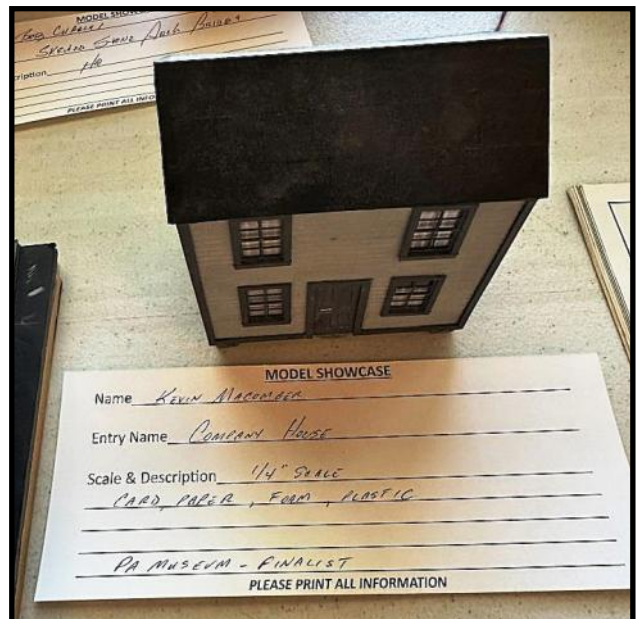 MODEL SHOW
Bob
Stone Arch Bridge
ription HO
PLEASE PRINT ALL INFO
MODEL SHOWCASE
Name Kevin Macomber
Entry Name Company House
Scale & Description 1/4" Scale
CARD, PAPER, FOAM, PLASTIC
PA MUSEUM - FINALIST
PLEASE PRINT ALL INFORMATION